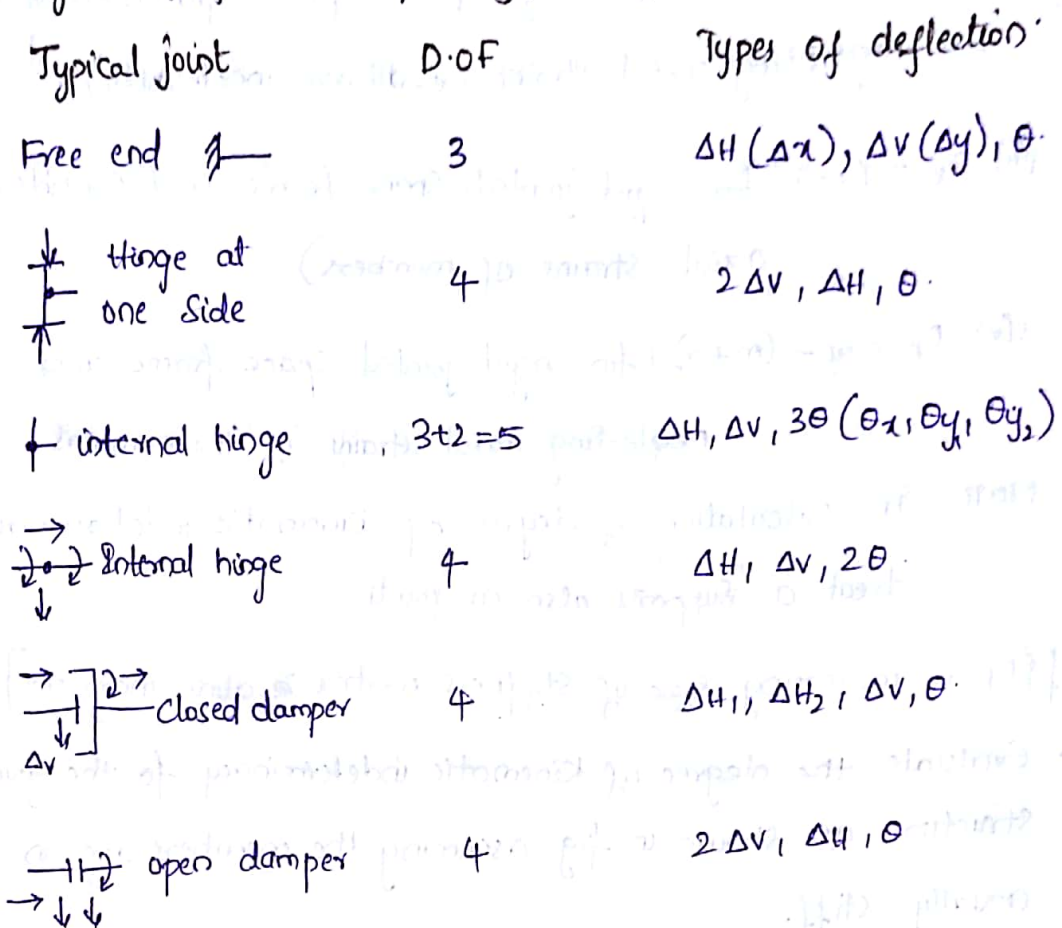 Typical joint D.OF Types of deflection.
Free end 3 ΔH (Δx), Δv (Δy), θ.
Hinge at
one side 4 2 Δv, ΔH, θ.
internal hinge 3+2=5 ΔH, Δv, 3θ (θx, θy₁, θy₂)
Internal hinge 4 ΔH, Δv, 2θ.
closed damper 4 ΔH₁, ΔH₂, Δv, θ.
Δv
open damper 4. 2 Δv, ΔH, θ